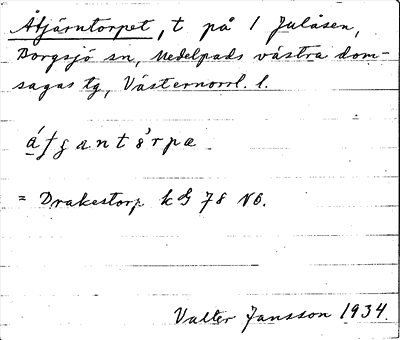 Åtjärntorpet, t på 1 Julåsen,
Borgsjö sn, Medelpads västra dom-
sagas tg, Västernorrl. l.
= Drakestorp kG 78 NO.
Valter Jansson 1934.